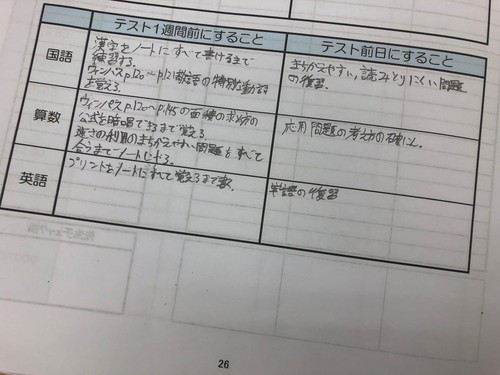 テスト1週間前にすること
テスト前日にすること
国語
漢字をノートにすべて書けるまで
練習する。
ウィンパスp.120～p.121敬語の特別な動詞
を覚える。
まちがえやすい、読みとりにくい問題
の復習。
算数
ウィンパスp.120～p.145の面積の求め方の
公式を暗唱できるまで覚える。
速さの利用のまちがえやすい問題をすべて
合うまでノートにやる。
応用問題の考え方の確にん。
英語
プリントをノートに
覚えるまで
単語の復習
26